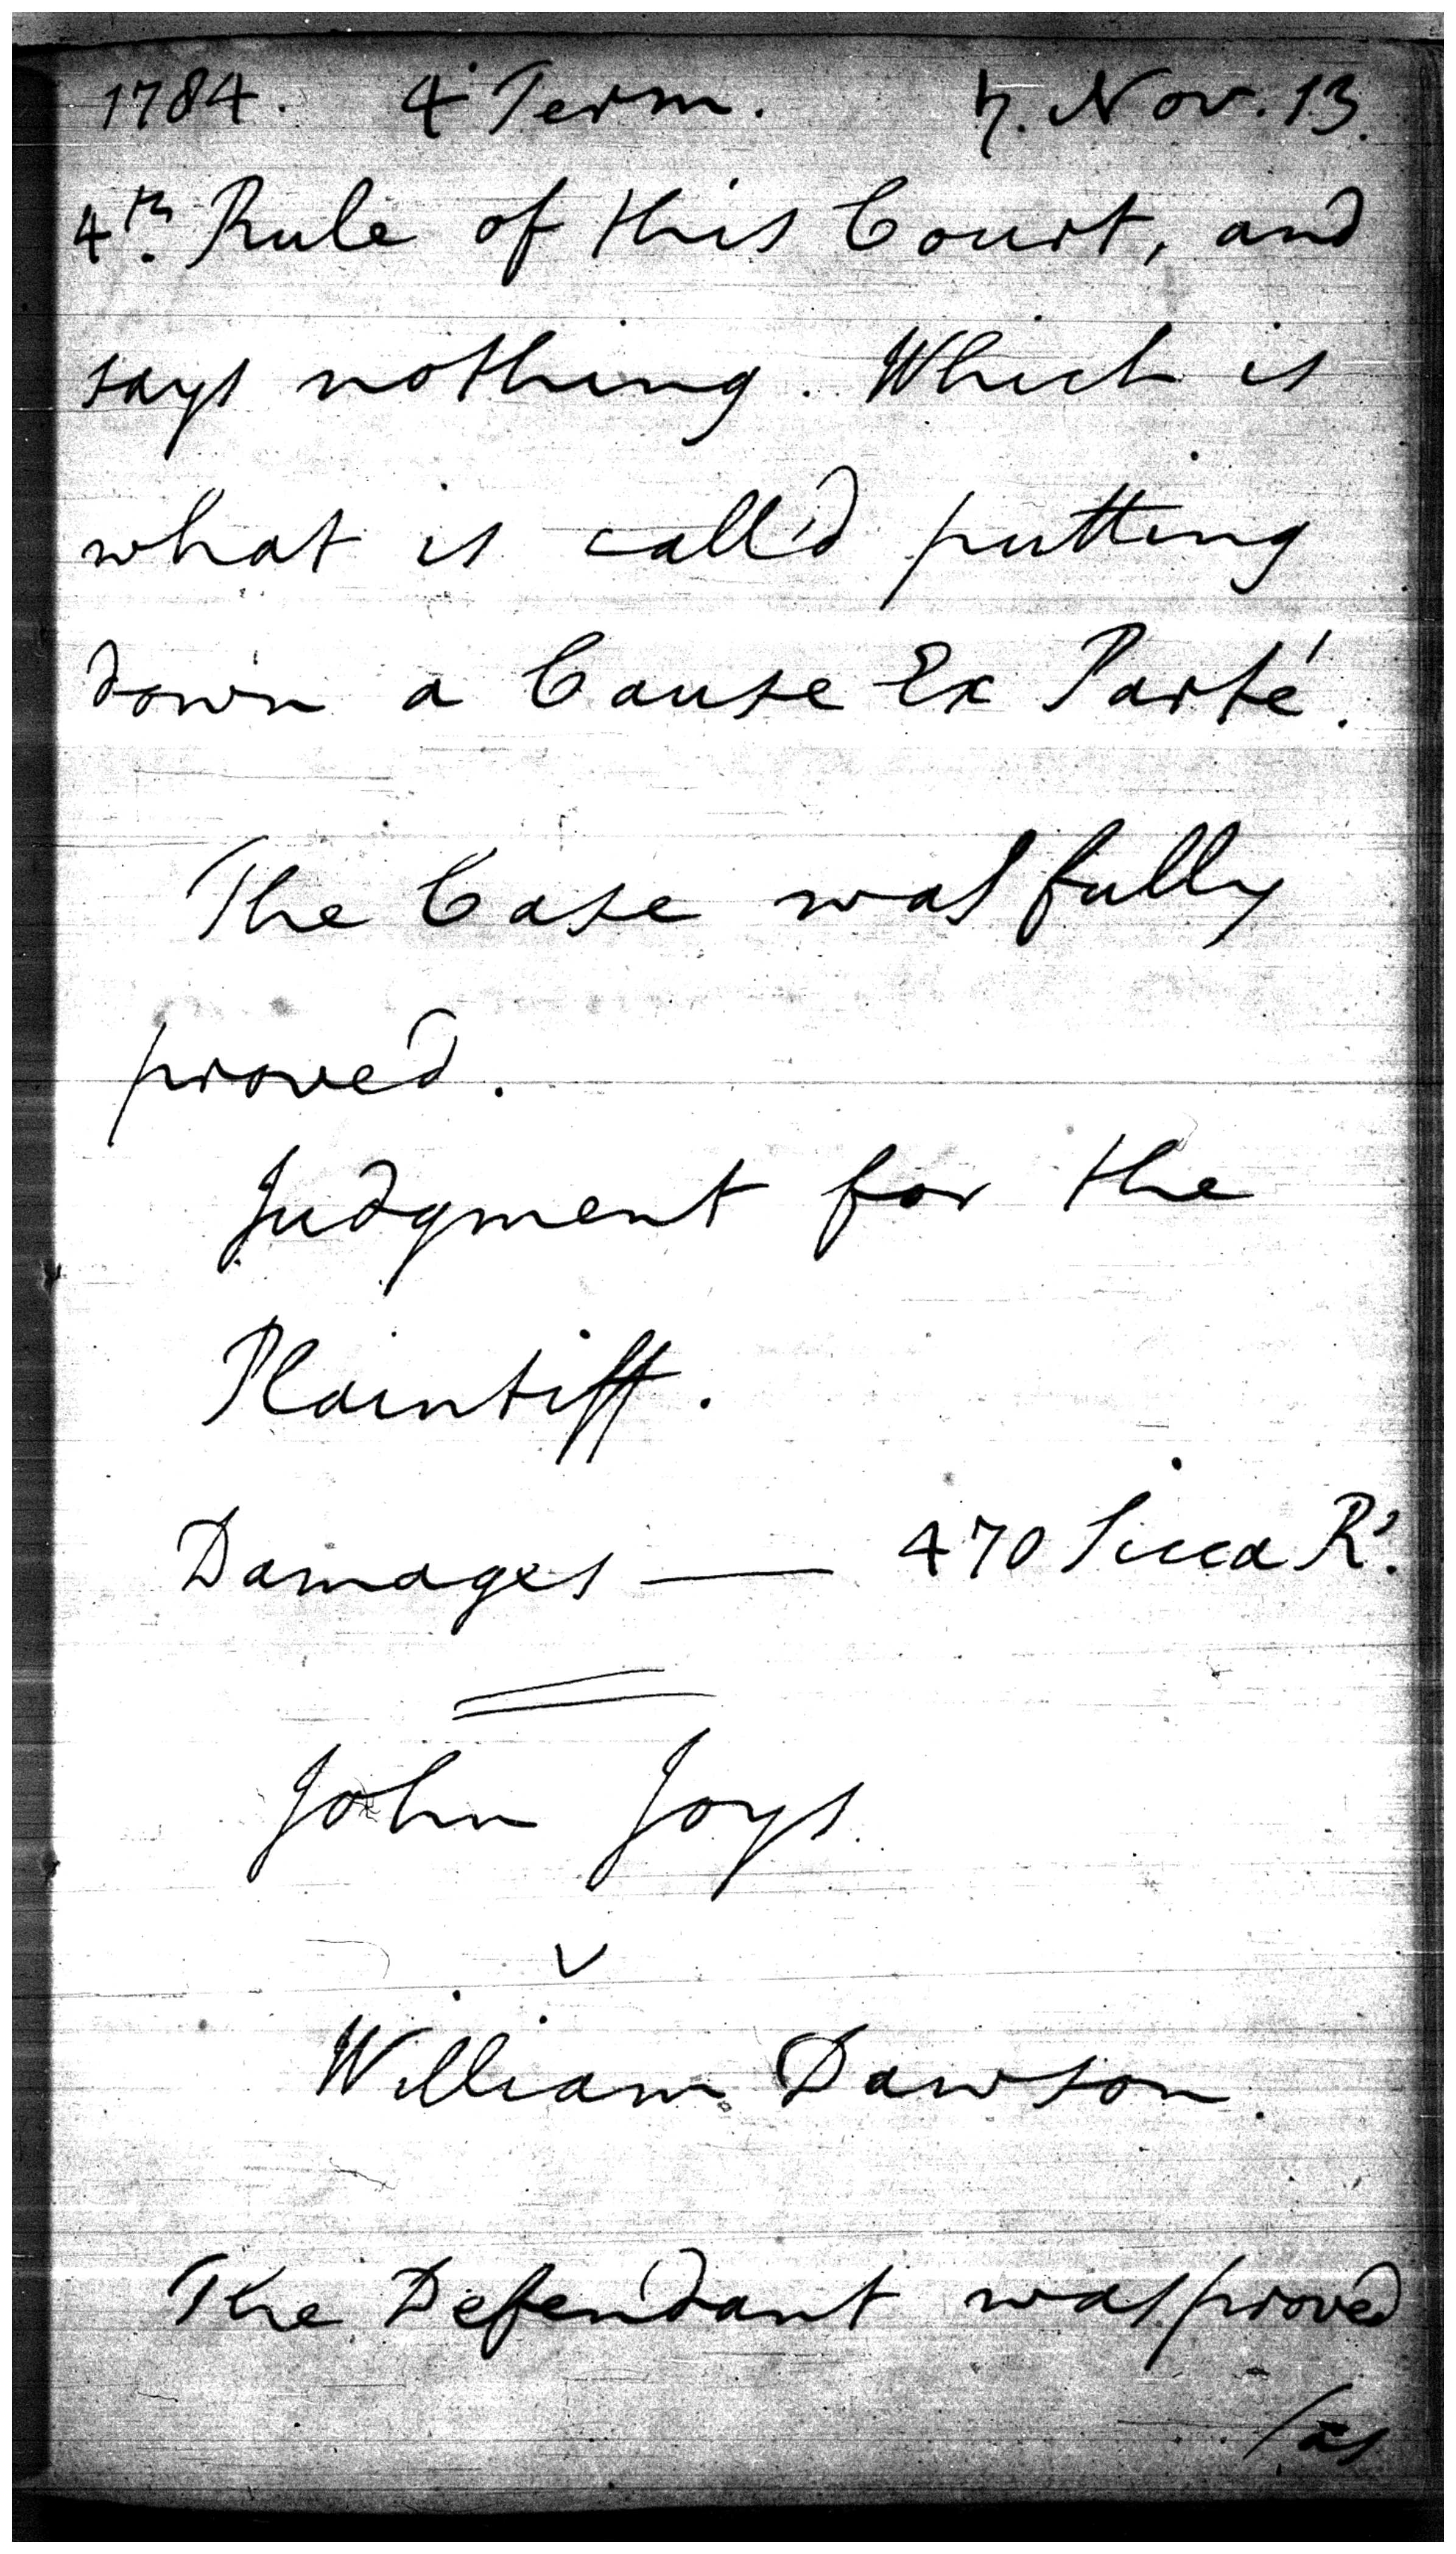 1784. 4 Term. ♄. Nov. 13.
4th. Rule of this Court, and
says nothing. Which is
what is call'd putting
down a Cause Ex Parté.
The Case was fully
proved.
Judgment for the
Plaintiff.
Damages — 470 Sicca Rs.
John Joys.
v
William Dawson.
The Defendant was proved
/as